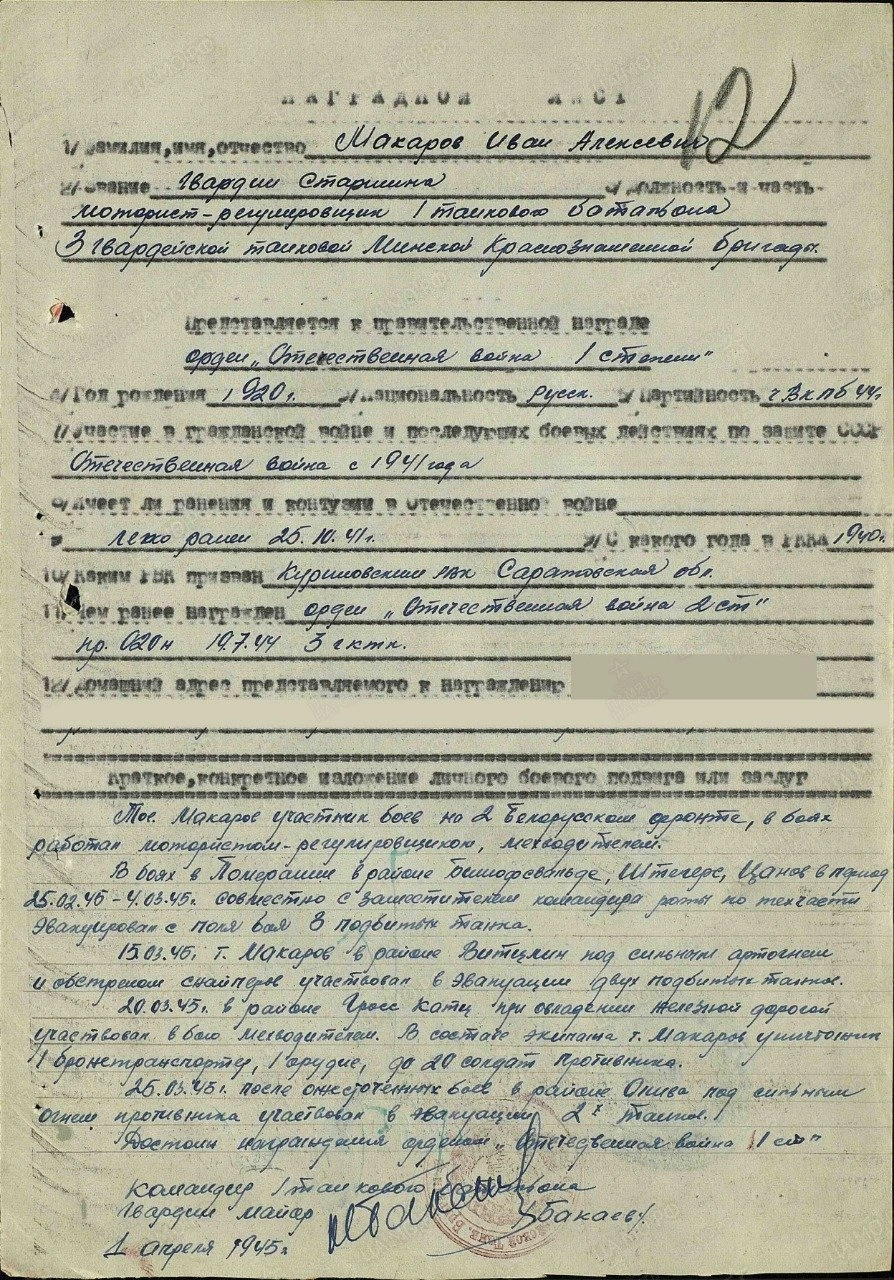 НАГРАДНОЙ ЛИСТ
12
1/Фамилия,имя,отчество Макаров Иван Алексеевич
2/Звание Гвардии Старшина 3/Должность и часть
моторист-регулировщик 1 танкового батальона
3 Гвардейской танковой Минской Краснознаменной бригады.
Представляется к правительственной награде
орден „Отечественная война 1 степени"
4/Год рождения 1920г. 5/Национальность русск. 6/Партийность ч ВКПб 44г
7/Участие в гражданской войне и последующих боевых действиях по защите СССР
Отечественная война с 1941 года
8/Имеет ли ранения и контузии в Отечественной войне
легко ранен 25.10.41г. 9/С какого года в РККА 1940г.
10/Каким РВК призван Куриловским рвк Саратовская обл.
11/Чем ранее награжден орден „Отечественная война 2 ст"
пр. 020н 19.7.44 3 гктк.
12/Домашний адрес представляемого к награждению
Краткое,конкретное изложение личного боевого подвига или заслуг
Тов. Макаров участник боев на 2 Белорусском фронте, в боях
работал мотористом-регулировщиком, мехводителем.
В боях в Померании в районе Бишофсвальде, Штегерс, Цанов в период
25.02.45 - 4.03.45г. совместно с заместителем командира роты по техчасти
эвакуировал с поля боя 3 подбитых танка.
15.03.45г. т. Макаров в районе под сильным артогнем
и обстрелом снайперов участвовал в эвакуации двух подбитых танков.
20.03.45г. в районе Гросс Катц при овладении железной дорогой
участвовал в бою мехводителем. В составе экипажа т. Макаров уничтожил
1 бронетранспортер, 1 орудие, до 20 солдат противника.
25.03.45г. после ожесточенных боев в районе Олива под сильным
огнем противника участвовал в эвакуации 2х танков.
Достоин награждения орденом „Отечественная война 1 ст"
Командир 1 танкового батальона
Гвардии майор /Бакаев/
1 апреля 1945г.